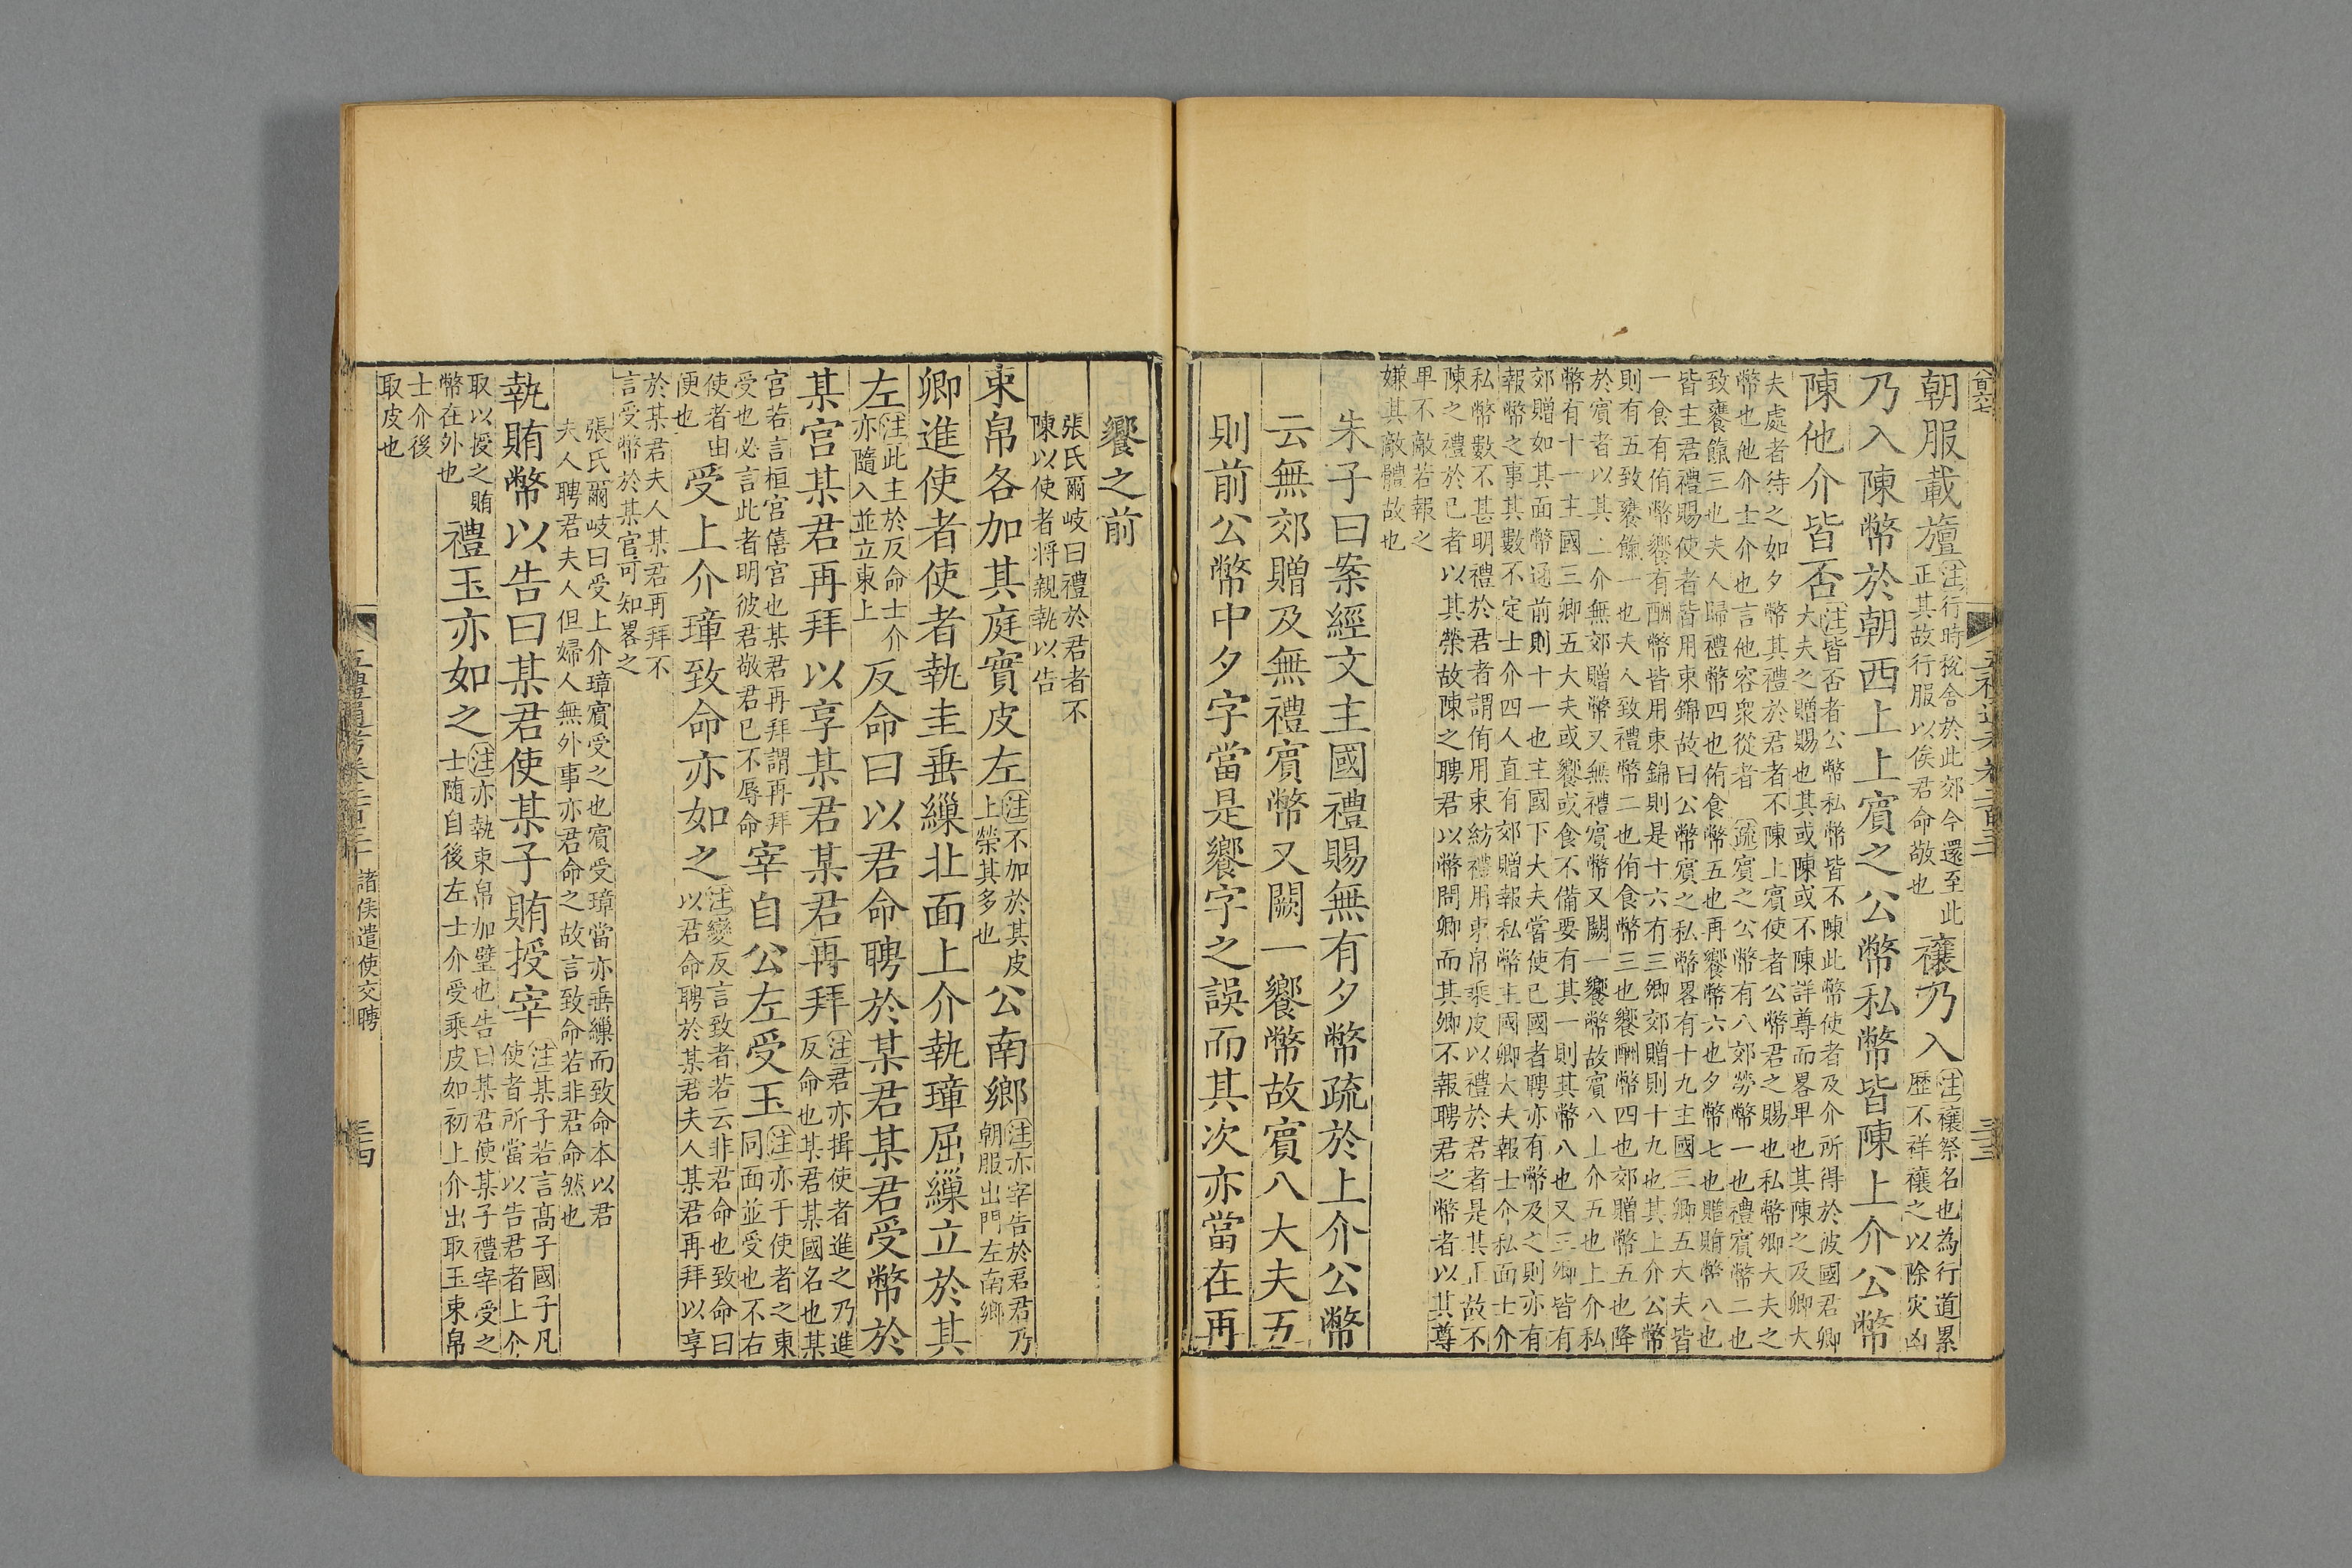 百六七
五禮通考卷二百三十 三十三
朝服載旜
注行時稅舍於此郊今還至此
正其故行服以俟君命敬也
禳乃入
注禳祭名也為行道累
歷不祥禳之以除灾凶
乃入陳幣於朝西上上賓之公幣私幣皆陳上介公幣
陳他介皆否
注皆否者公幣私幣皆不陳此幣使者及介所得於彼國君卿
大夫之贈賜也其或陳或不陳詳尊而畧卑也其陳之及卿大
夫處者待之如夕幣其禮於君者不陳上賓使者公幣君之賜也私幣卿大夫之
幣也他介士介也言他容眾從者 疏賓之公幣有八郊勞幣一也禮賓幣二也
致饔餼三也夫人歸禮幣四也侑食幣五也再饗幣六也夕幣七也贈賄幣八也
皆主君禮賜使者皆用束錦故曰公幣賓之私幣畧有十九主國三卿五大夫皆
一食有侑幣饗有酬幣皆用束錦則是十六有三卿郊贈則十九也其上介公幣
則有五致饔餼一也夫人致禮幣二也侑食幣三也饗酬幣四也郊贈幣五也降
於賓者以其二介無郊贈幣又無禮賓幣又闕一饗幣故賓八上介五也上介私
幣有十一主國三卿五大夫或饗或食不備要有其一則其幣八也又三卿皆有
郊贈如其面幣通前則十一也主國下大夫當使己國者聘亦有幣及之則亦有
報幣之事其數不定士介四人直有郊贈報私幣主國卿大夫報士介私面士介
私幣數不甚明禮於君者謂侑用束紡禮用束帛乘皮以禮於君者是其正故不
陳之禮於己者以其榮故陳之聘君以幣問卿而其卿不報聘君之幣者以其尊
卑不敵若報之
嫌其敵體故也
朱子曰案經文主國禮賜無有夕幣疏於上介公幣
云無郊贈及無禮賓幣又闕一饗幣故賓八大夫五
則前公幣中夕字當是饗字之誤而其次亦當在再
饗之前
張氏爾岐曰禮於君者不
陳以使者將親執以告
束帛各加其庭實皮左
注不加於其皮
上榮其多也
公南鄉
注亦宰告於君君乃
朝服出門左南鄉
卿進使者使者執圭垂繅北面上介執璋屈繅立於其
左
注此主於反命士介
亦隨入並立東上
反命曰以君命聘於某君某君受幣於
某宮某君再拜以享某君某君再拜
注君亦揖使者進之乃進
反命也某君某國名也某
宮若言桓宮僖宮也某君再拜謂再拜
受也必言此者明彼君敬君己不辱命
宰自公左受玉
注亦于使者之東
同面並受也不右
使者由
便也
受上介璋致命亦如之
注變反言致者若云非君命也致命曰
以君命聘於某君夫人某君再拜以享
於某君夫人某君再拜不
言受幣於某宮可知畧之
張氏爾岐曰受上介璋賓受之也賓受璋當亦垂繅而致命本以君
夫人聘君夫人但婦人無外事亦君命之故言致命若非君命然也
執賄幣以告曰某君使某子賄授宰
注某子若言髙子國子凡
使者所當以告君者上介
取以授之賄
幣在外也
禮玉亦如之
注亦執束帛加璧也告曰某君使某子禮宰受之
士隨自後左士介受乘皮如初上介出取玉束帛
士介後
取皮也
五禮通考卷二百三十 諸侯遣使交聘 三十四